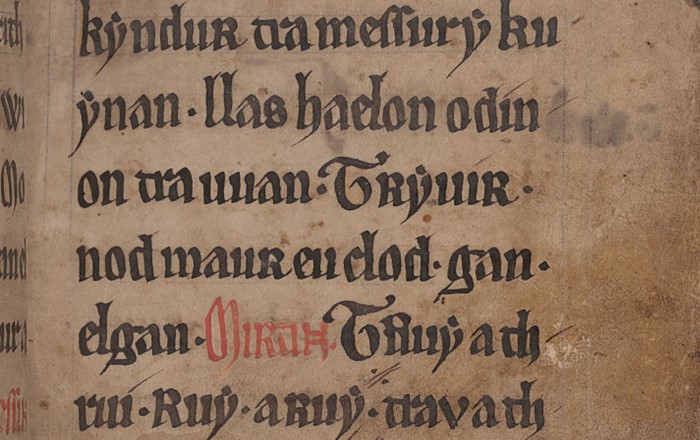 kẏndur tra messur ẏ ku
ẏnan · llas haelon o din
on tra uuan · Trẏuir ·
nod maur eu clod · gan ·
elgan · Mirtin · Truẏ a th
rui · Ruẏ · a ruẏ · trav a th